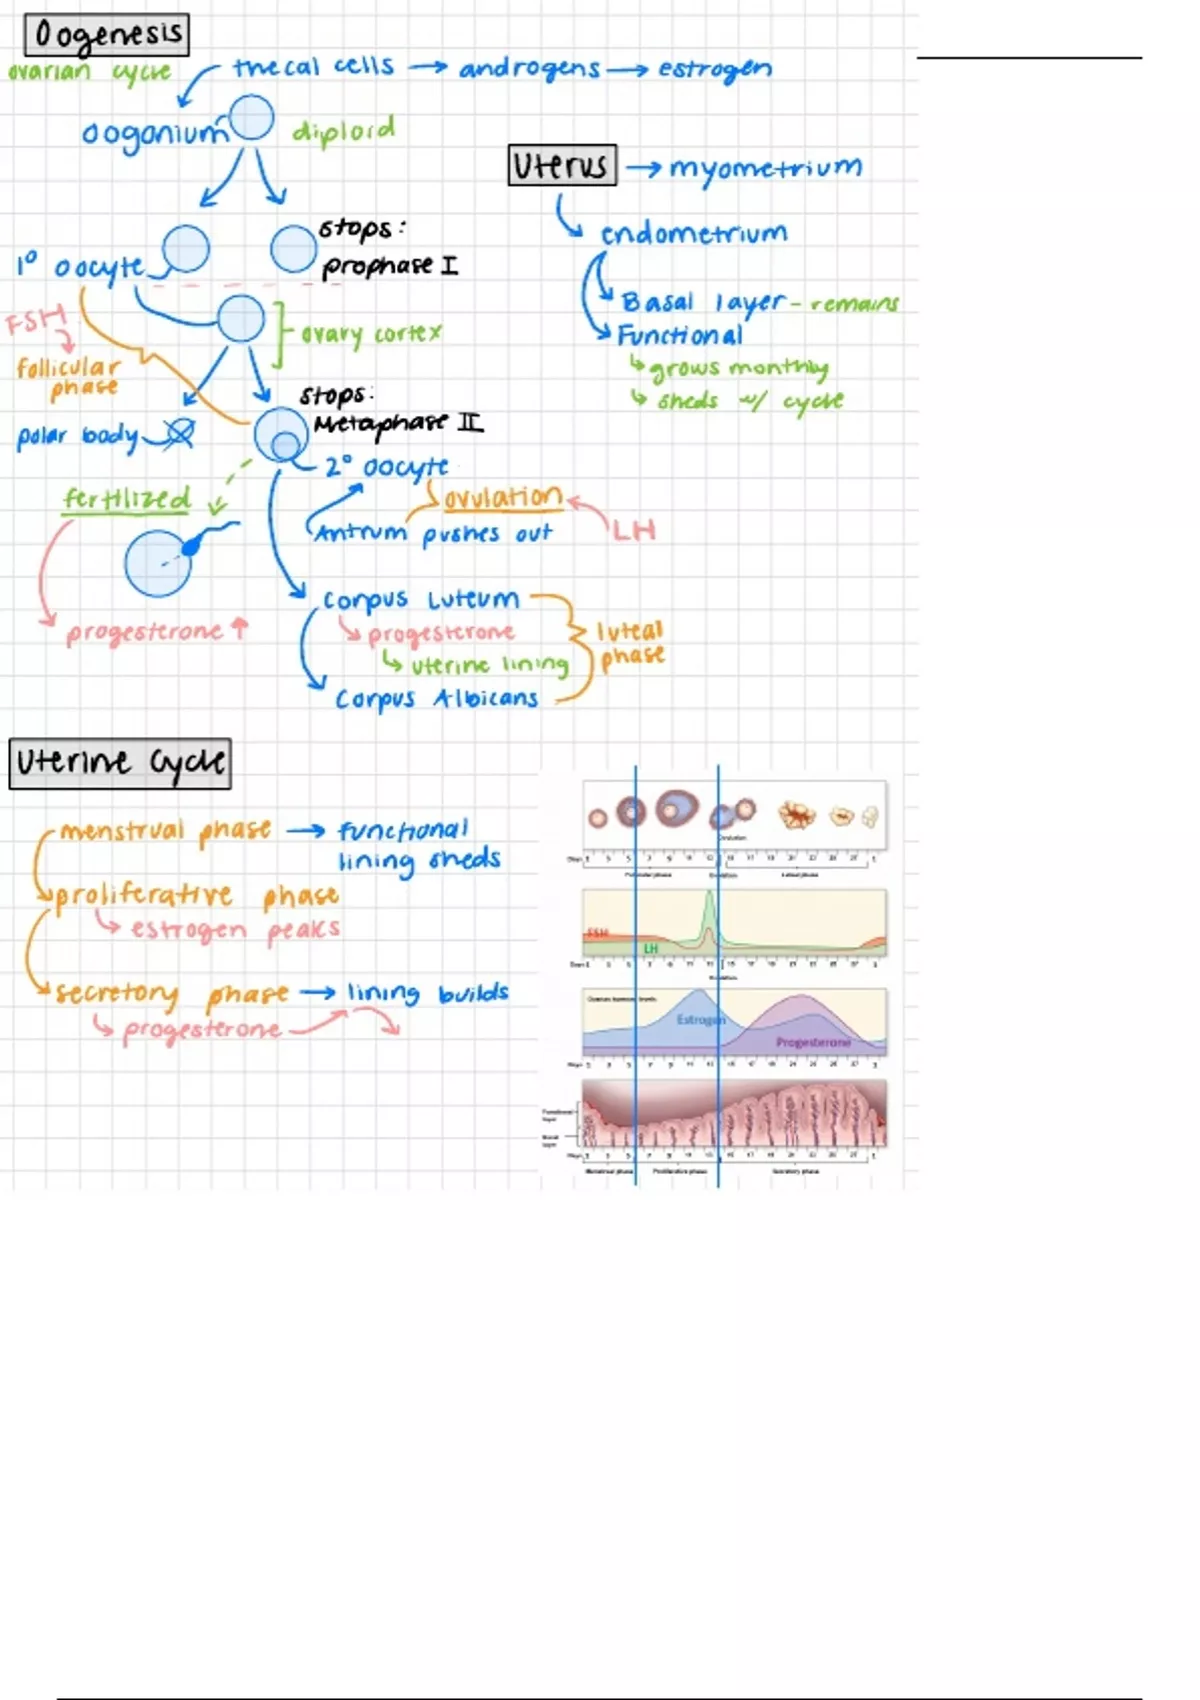 Oogenesis
ovarian cycle
thecal cells → androgens → estrogen
oogonium
diploid
Uterus → myometrium
endometrium
Basal layer - remains
Functional
↳ grows monthly
↳ sheds w/ cycle
stops:
prophase I
1° oocyte
FSH
follicular
phase
ovary cortex
stops:
Metaphase II
polar body
2° oocyte
fertilized
ovulation
Antrum pushes out
LH
progesterone ↑
Corpus Luteum
↳ progesterone
↳ uterine lining
Corpus Albicans
luteal
phase
Uterine Cycle
menstrual phase → functional
lining sheds
proliferative phase
↳ estrogen peaks
secretory phase → lining builds
↳ progesterone
Ovulation
Follicular phase
Ovulation
Luteal phase
FSH
LH
Ovulation
Ovarian hormone levels
Estrogen
Progesterone
Functional
layer
Basal
layer
Menstrual phase
Proliferative phase
Secretory phase